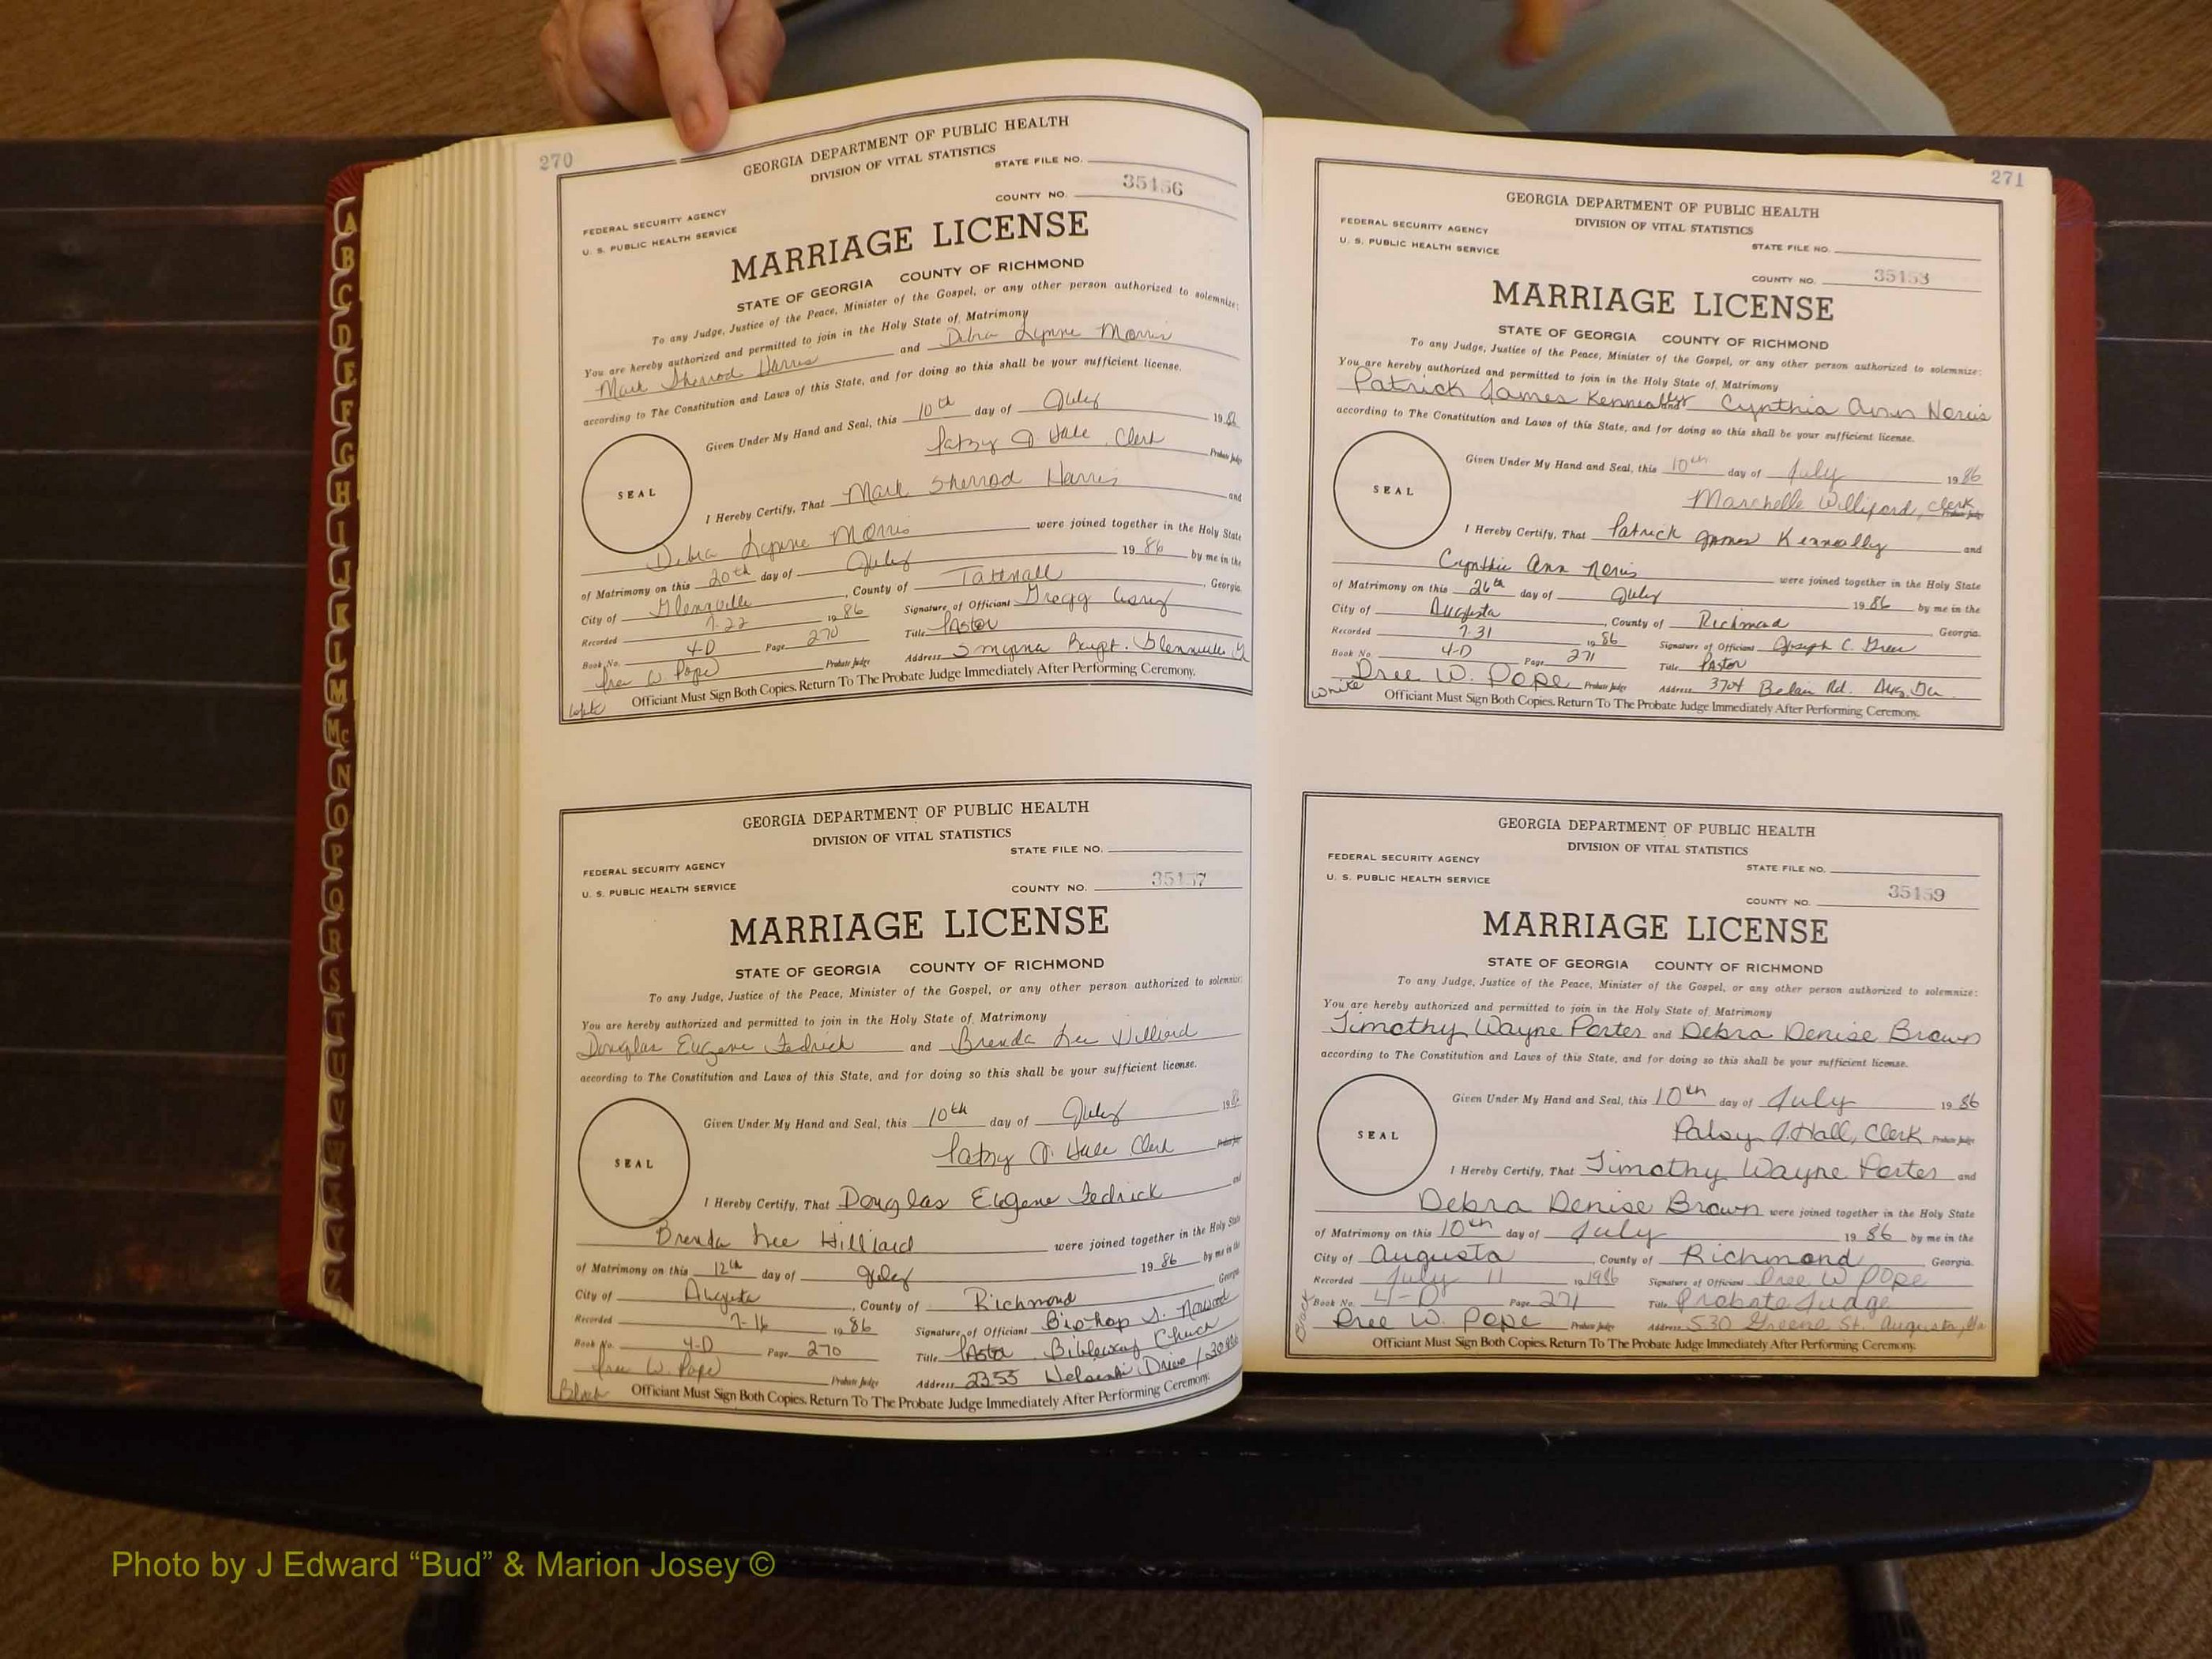 270
GEORGIA DEPARTMENT OF PUBLIC HEALTH
DIVISION OF VITAL STATISTICS
STATE FILE NO.
COUNTY NO. 35456
FEDERAL SECURITY AGENCY
U. S. PUBLIC HEALTH SERVICE
MARRIAGE LICENSE
STATE OF GEORGIA COUNTY OF RICHMOND
To any Judge, Justice of the Peace, Minister of the Gospel, or any other person authorized to solemnize:
You are hereby authorized and permitted to join in the Holy State of Matrimony
Mark Sherrod Harris and Debra Lynne Morris
according to The Constitution and Laws of this State, and for doing so this shall be your sufficient license.
Given Under My Hand and Seal, this 10th day of July 1986
Patsy J. Hall, Clerk Probate Judge
SEAL
I Hereby Certify, That Mark Sherrod Harris and
Debra Lynne Morris were joined together in the Holy State
of Matrimony on this 20th day of July 1986 by me in the
City of Glennville, County of Tattnall, Georgia.
Recorded 7-22 1986 Signature of Officiant Gregg
Book No. 4-D Page 270 Title Pastor
Dree W. Pope Probate Judge Address Smyrna Bapt. Glennville Ga
Officiant Must Sign Both Copies. Return To The Probate Judge Immediately After Performing Ceremony.
GEORGIA DEPARTMENT OF PUBLIC HEALTH
DIVISION OF VITAL STATISTICS
STATE FILE NO.
COUNTY NO. 35457
FEDERAL SECURITY AGENCY
U. S. PUBLIC HEALTH SERVICE
MARRIAGE LICENSE
STATE OF GEORGIA COUNTY OF RICHMOND
To any Judge, Justice of the Peace, Minister of the Gospel, or any other person authorized to solemnize:
You are hereby authorized and permitted to join in the Holy State of Matrimony
Douglas Eugene Fedrick and Brenda Lee Hilliard
according to The Constitution and Laws of this State, and for doing so this shall be your sufficient license.
Given Under My Hand and Seal, this 10th day of July 1986
Patsy J. Hall Clerk Probate Judge
SEAL
I Hereby Certify, That Douglas Eugene Fedrick and
Brenda Lee Hilliard were joined together in the Holy State
of Matrimony on this 12th day of July 1986 by me in the
City of Augusta, County of Richmond Georgia
Recorded 7-16 1986 Signature of Officiant Bishop S.
Book No. 4-D Page 270 Title Pastor Bibleway Church
Dree W. Pope Probate Judge Address 2355 Drive
Black Officiant Must Sign Both Copies. Return To The Probate Judge Immediately After Performing Ceremony.
271
GEORGIA DEPARTMENT OF PUBLIC HEALTH
DIVISION OF VITAL STATISTICS
STATE FILE NO.
COUNTY NO. 35458
FEDERAL SECURITY AGENCY
U. S. PUBLIC HEALTH SERVICE
MARRIAGE LICENSE
STATE OF GEORGIA COUNTY OF RICHMOND
To any Judge, Justice of the Peace, Minister of the Gospel, or any other person authorized to solemnize:
You are hereby authorized and permitted to join in the Holy State of Matrimony
Patrick James Kenneally and Cynthia Ann Norris
according to The Constitution and Laws of this State, and for doing so this shall be your sufficient license.
Given Under My Hand and Seal, this 10th day of July 1986
Marchelle Williford, Clerk Probate Judge
SEAL
I Hereby Certify, That Patrick James Kenneally and
Cynthia Ann Norris were joined together in the Holy State
of Matrimony on this 26th day of July 1986 by me in the
City of Augusta, County of Richmond Georgia.
Recorded 7-31 1986 Signature of Officiant Joseph C.
Book No. 4-D Page 271 Title Pastor
Dree W. Pope Probate Judge Address 3704 Belair Rd. Aug. Ga.
White Officiant Must Sign Both Copies. Return To The Probate Judge Immediately After Performing Ceremony.
GEORGIA DEPARTMENT OF PUBLIC HEALTH
DIVISION OF VITAL STATISTICS
STATE FILE NO.
COUNTY NO. 35459
FEDERAL SECURITY AGENCY
U. S. PUBLIC HEALTH SERVICE
MARRIAGE LICENSE
STATE OF GEORGIA COUNTY OF RICHMOND
To any Judge, Justice of the Peace, Minister of the Gospel, or any other person authorized to solemnize:
You are hereby authorized and permitted to join in the Holy State of Matrimony
Timothy Wayne Porter and Debra Denise Brown
according to The Constitution and Laws of this State, and for doing so this shall be your sufficient license.
Given Under My Hand and Seal, this 10th day of July 1986
Patsy J. Hall, Clerk Probate Judge
SEAL
I Hereby Certify, That Timothy Wayne Porter and
Debra Denise Brown were joined together in the Holy State
of Matrimony on this 10th day of July 1986 by me in the
City of Augusta, County of Richmond Georgia.
Recorded July 11 19 1986 Signature of Officiant Dree W Pope
Book No. 4-D Page 271 Title Probate Judge
Dree W. Pope Probate Judge Address 530 Greene St. Augusta, Ga
Black
Officiant Must Sign Both Copies. Return To The Probate Judge Immediately After Performing Ceremony.
Photo by J Edward “Bud” & Marion Josey ©